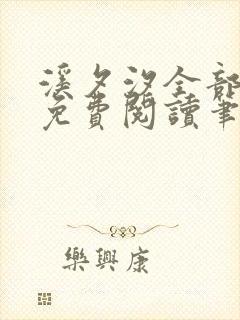 溪夕汐全部
免費閱讀筆
樂興康